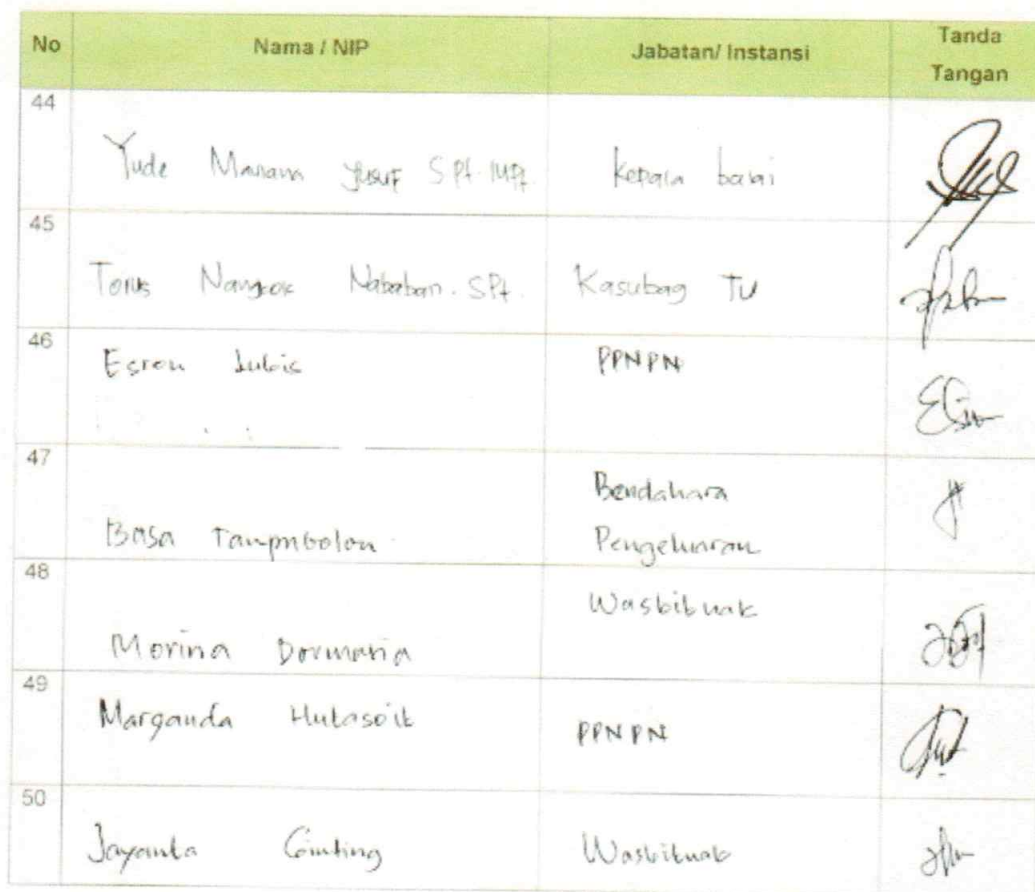 No Nama / NIP Jabatan/ Instansi Tanda Tangan
44
Yude Maulana Yusuf S.Pt. M.Pt. Kepala balai
45
Torus Nangkok Nababan. SPt. Kasubag TU
46
Esron Lubis PPNPN
47
Bendahara
Basa Tampubolon Pengeluaran
48
Wasbitnak
Morina Dormaria
49
Marganda Hutasoit PPNPN
50
Jayanta Ginting Wasbitnak